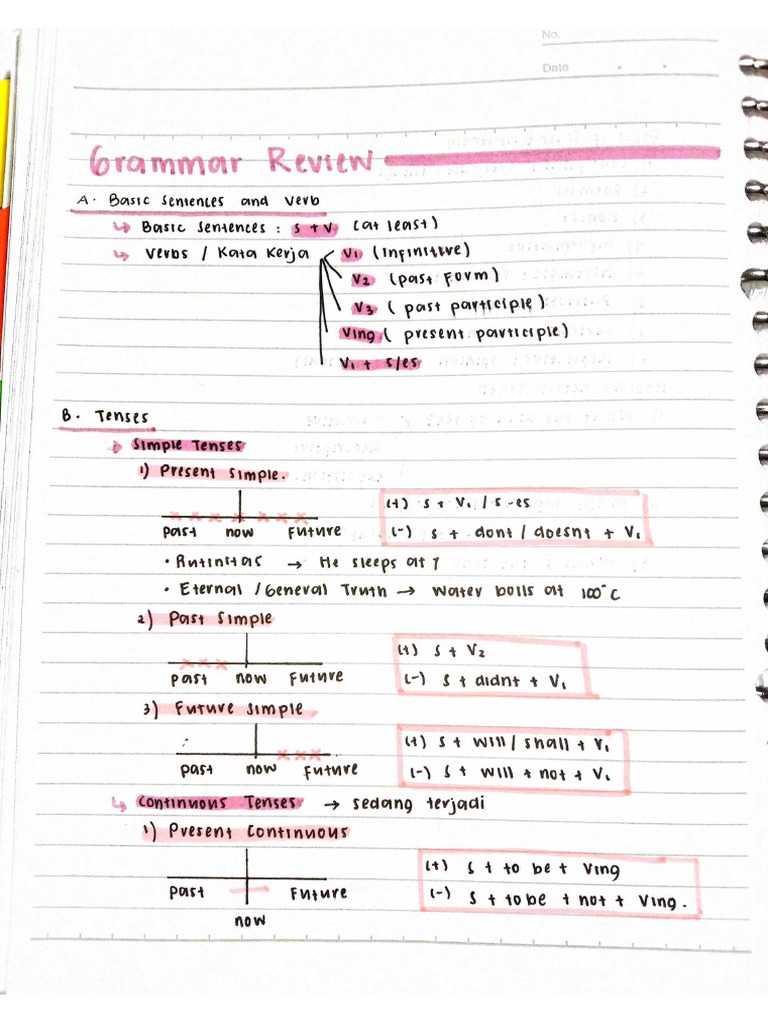 No.
Date
Grammar Review
A. Basic Sentences and Verb
↳ Basic Sentences : S + V (at least)
↳ Verbs / Kata Kerja V1 (infinitive)
V2 (past form)
V3 ( past participle)
Ving ( present participle)
V1 + s/es
B. Tenses
↳ Simple Tenses
1) Present Simple.
past now Future
(+) S + V1 / s -es
(-) S + dont / doesnt + V1
• Rutinitas → He sleeps at 9
• Eternal / General Truth → Water boils at 100°C
2) Past Simple
past now Future
(+) S + V2
(-) S + didnt + V1
3) Future Simple
past now Future
(+) S + will / shall + V1
(-) S + will + not + V1
↳ Continuous Tenses → sedang terjadi
1) Present Continuous
Past Future
now
(+) S + to be + Ving
(-) S + to be + not + Ving.